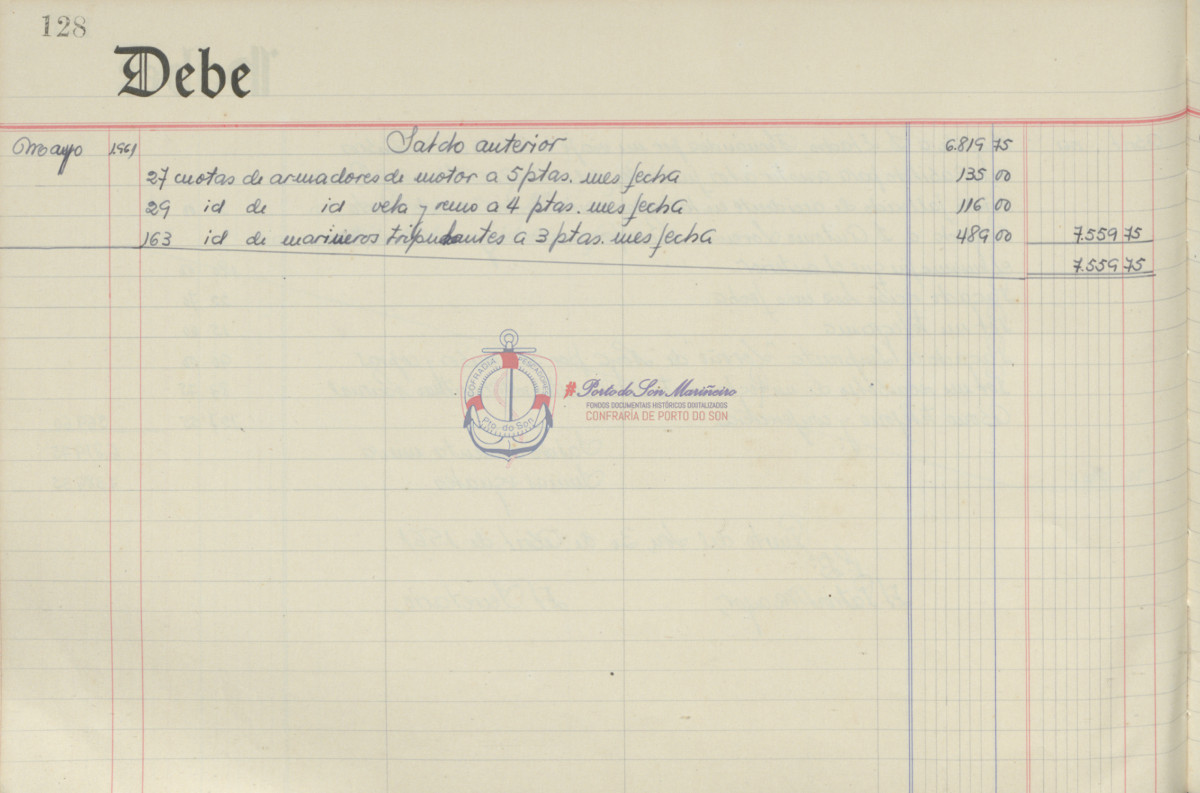 128
Debe
Mayo 1961 Saldo anterior 6.819 75
27 cuotas de armadores de motor a 5 ptas. mes fecha 135 00
29 id de id vela y remo a 4 ptas. mes fecha 116 00
163 id de marineros tripulantes a 3 ptas. mes fecha 489 00 7.559 75
7.559 75
COFRADIA PESCADORES
Pto. do Son
#Porto do Són Mariñeiro
FONDOS DOCUMENTAIS HISTÓRICOS DIXITALIZADOS
CONFRARÍA DE PORTO DO SON